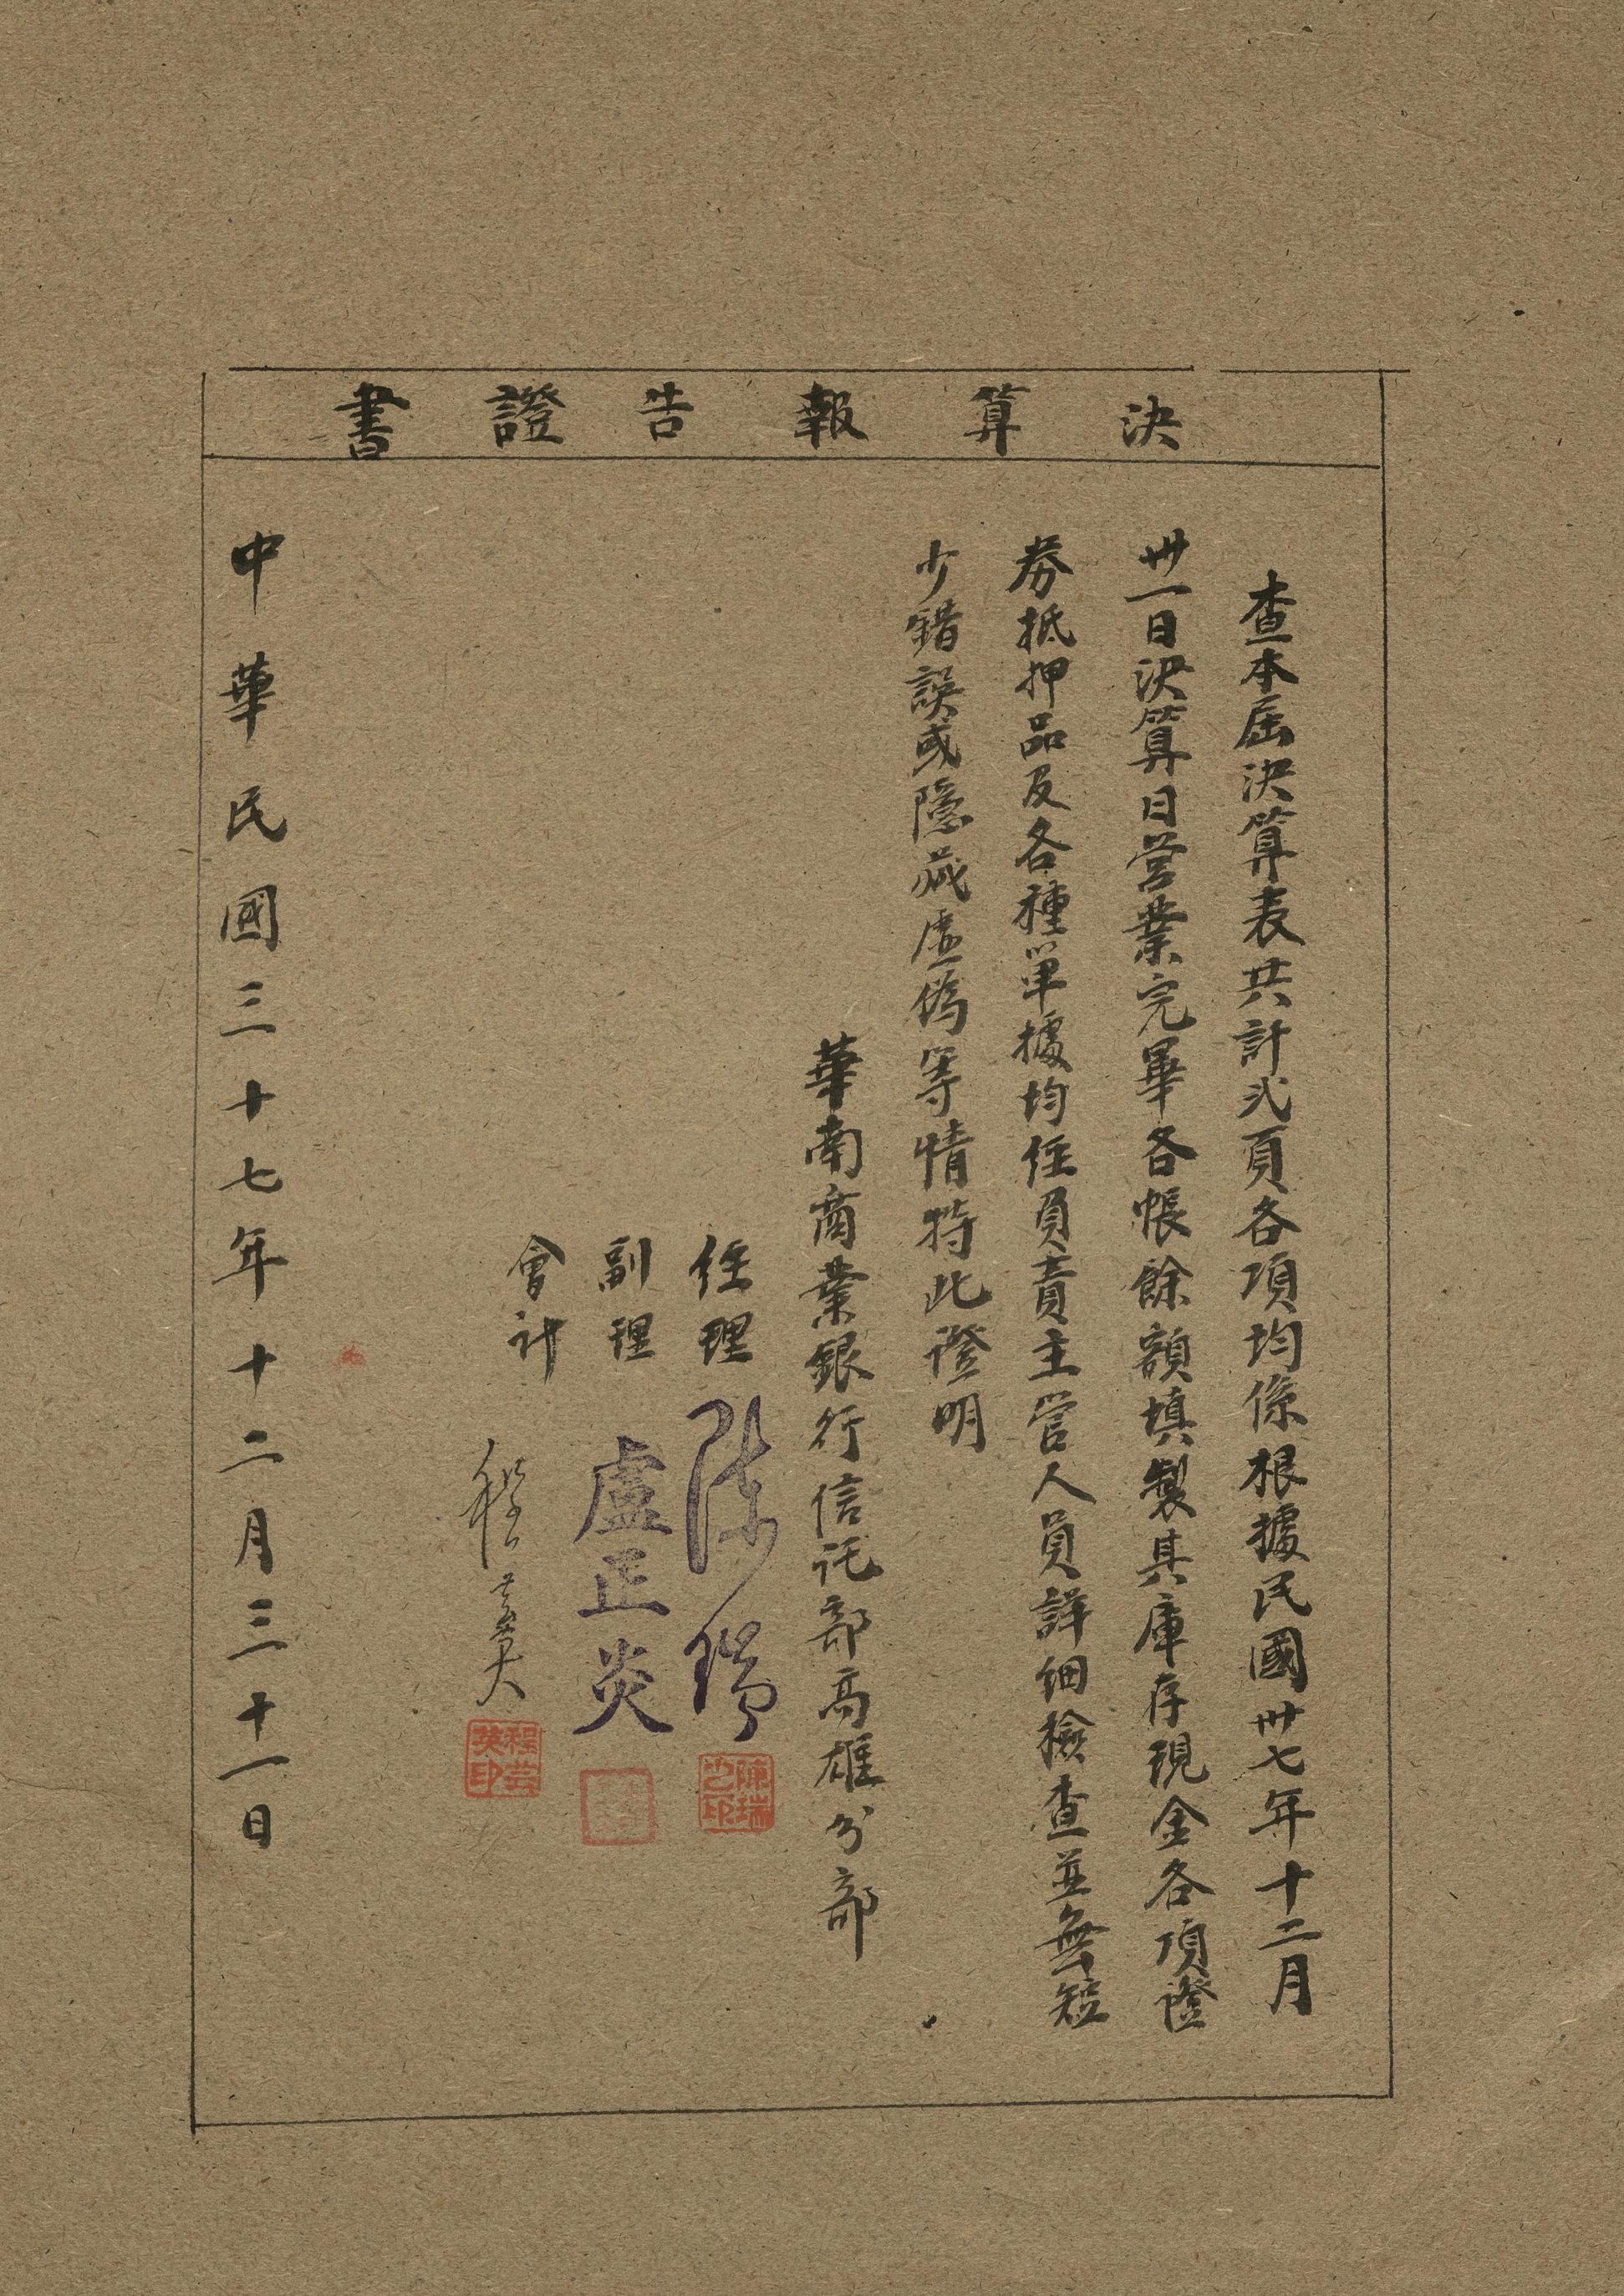 決算報告證書
查本屆決算表共計弍頁各項均係根據民國卅七年十二月
卅一日決算日営業完畢各帳餘額填製其庫存現金各項證
券抵押品及各種単據均经負責主管人員詳細檢查並無短
少錯誤或隱藏虛偽等情特此證明
華南商業銀行信託部高雄分部
经理 陳瑞
副理 盧正炎
會計 程
陳瑞
程芸英印
中華民國三十七年十二月三十一日